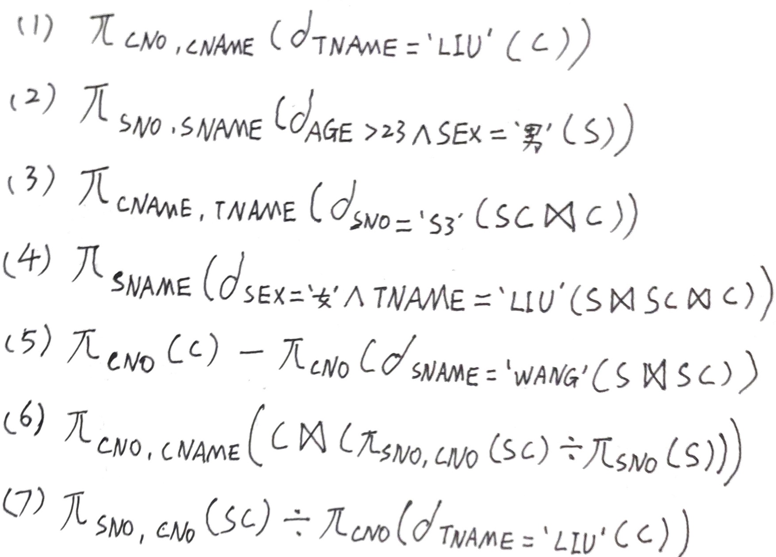 (1) π CNO,CNAME (σ TNAME='LIU' (C))
(2) π SNO,SNAME (σ AGE>23∧SEX='男' (S))
(3) π CNAME,TNAME (σ SNO='S3' (SC⋈C))
(4) π SNAME (σ SEX='女'∧TNAME='LIU' (S⋈SC⋈C))
(5) π CNO (C) − π CNO (σ SNAME='WANG' (S⋈SC))
(6) π CNO,CNAME (C⋈(π SNO,CNO (SC)÷π SNO (S)))
(7) π SNO,CNO (SC)÷π CNO (σ TNAME='LIU' (C))